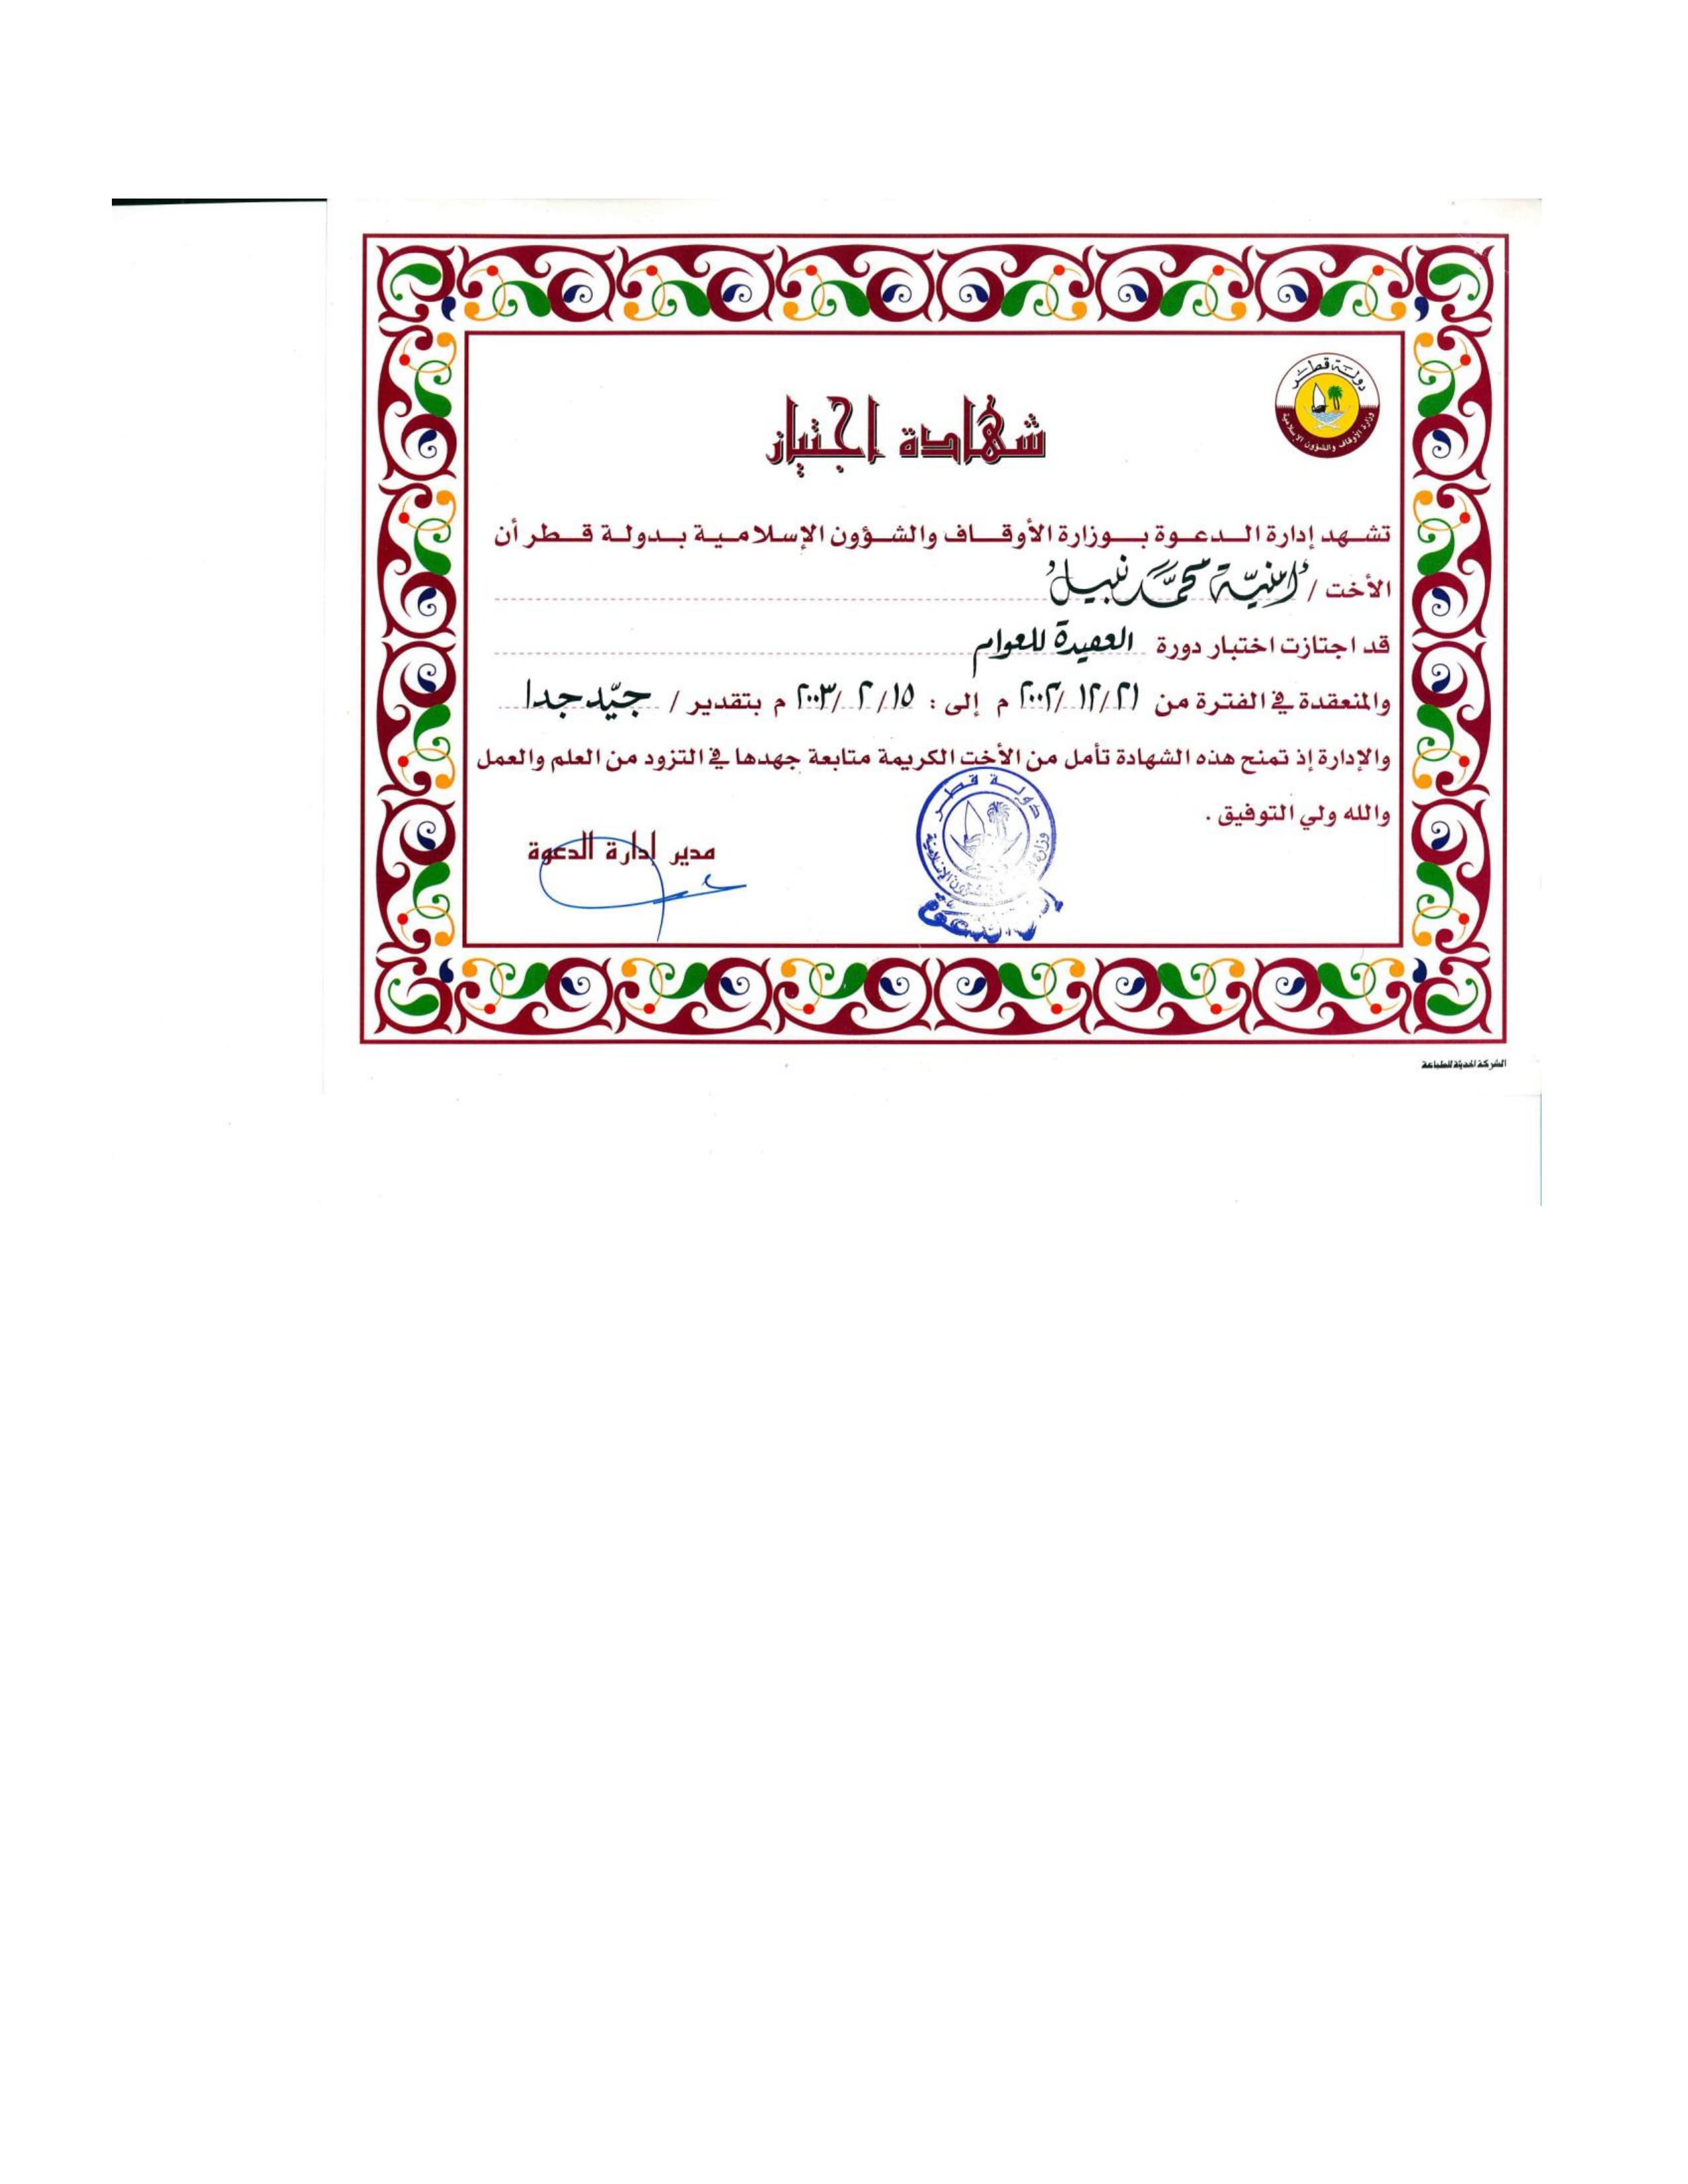 دولة قطر
وزارة الأوقاف والشؤون الإسلامية
شهادة إجتياز
تشهد إدارة الدعوة بوزارة الأوقاف والشؤون الإسلامية بدولة قطر أن
الأخت / أمنيّة محمّد نبيل
قد اجتازت اختبار دورة العقيدة للعوام
والمنعقدة في الفترة من ٢١/ ١٢/ ٢٠٠٢ م إلى : ١٥/ ٢ /٢٠٠٣ م بتقدير / جيّد جدا
والإدارة إذ تمنح هذه الشهادة تأمل من الأخت الكريمة متابعة جهدها في التزود من العلم والعمل
والله ولي التوفيق .
دولة قطر
مدير إدارة الدعوة
الشركة الحديثة للطباعة